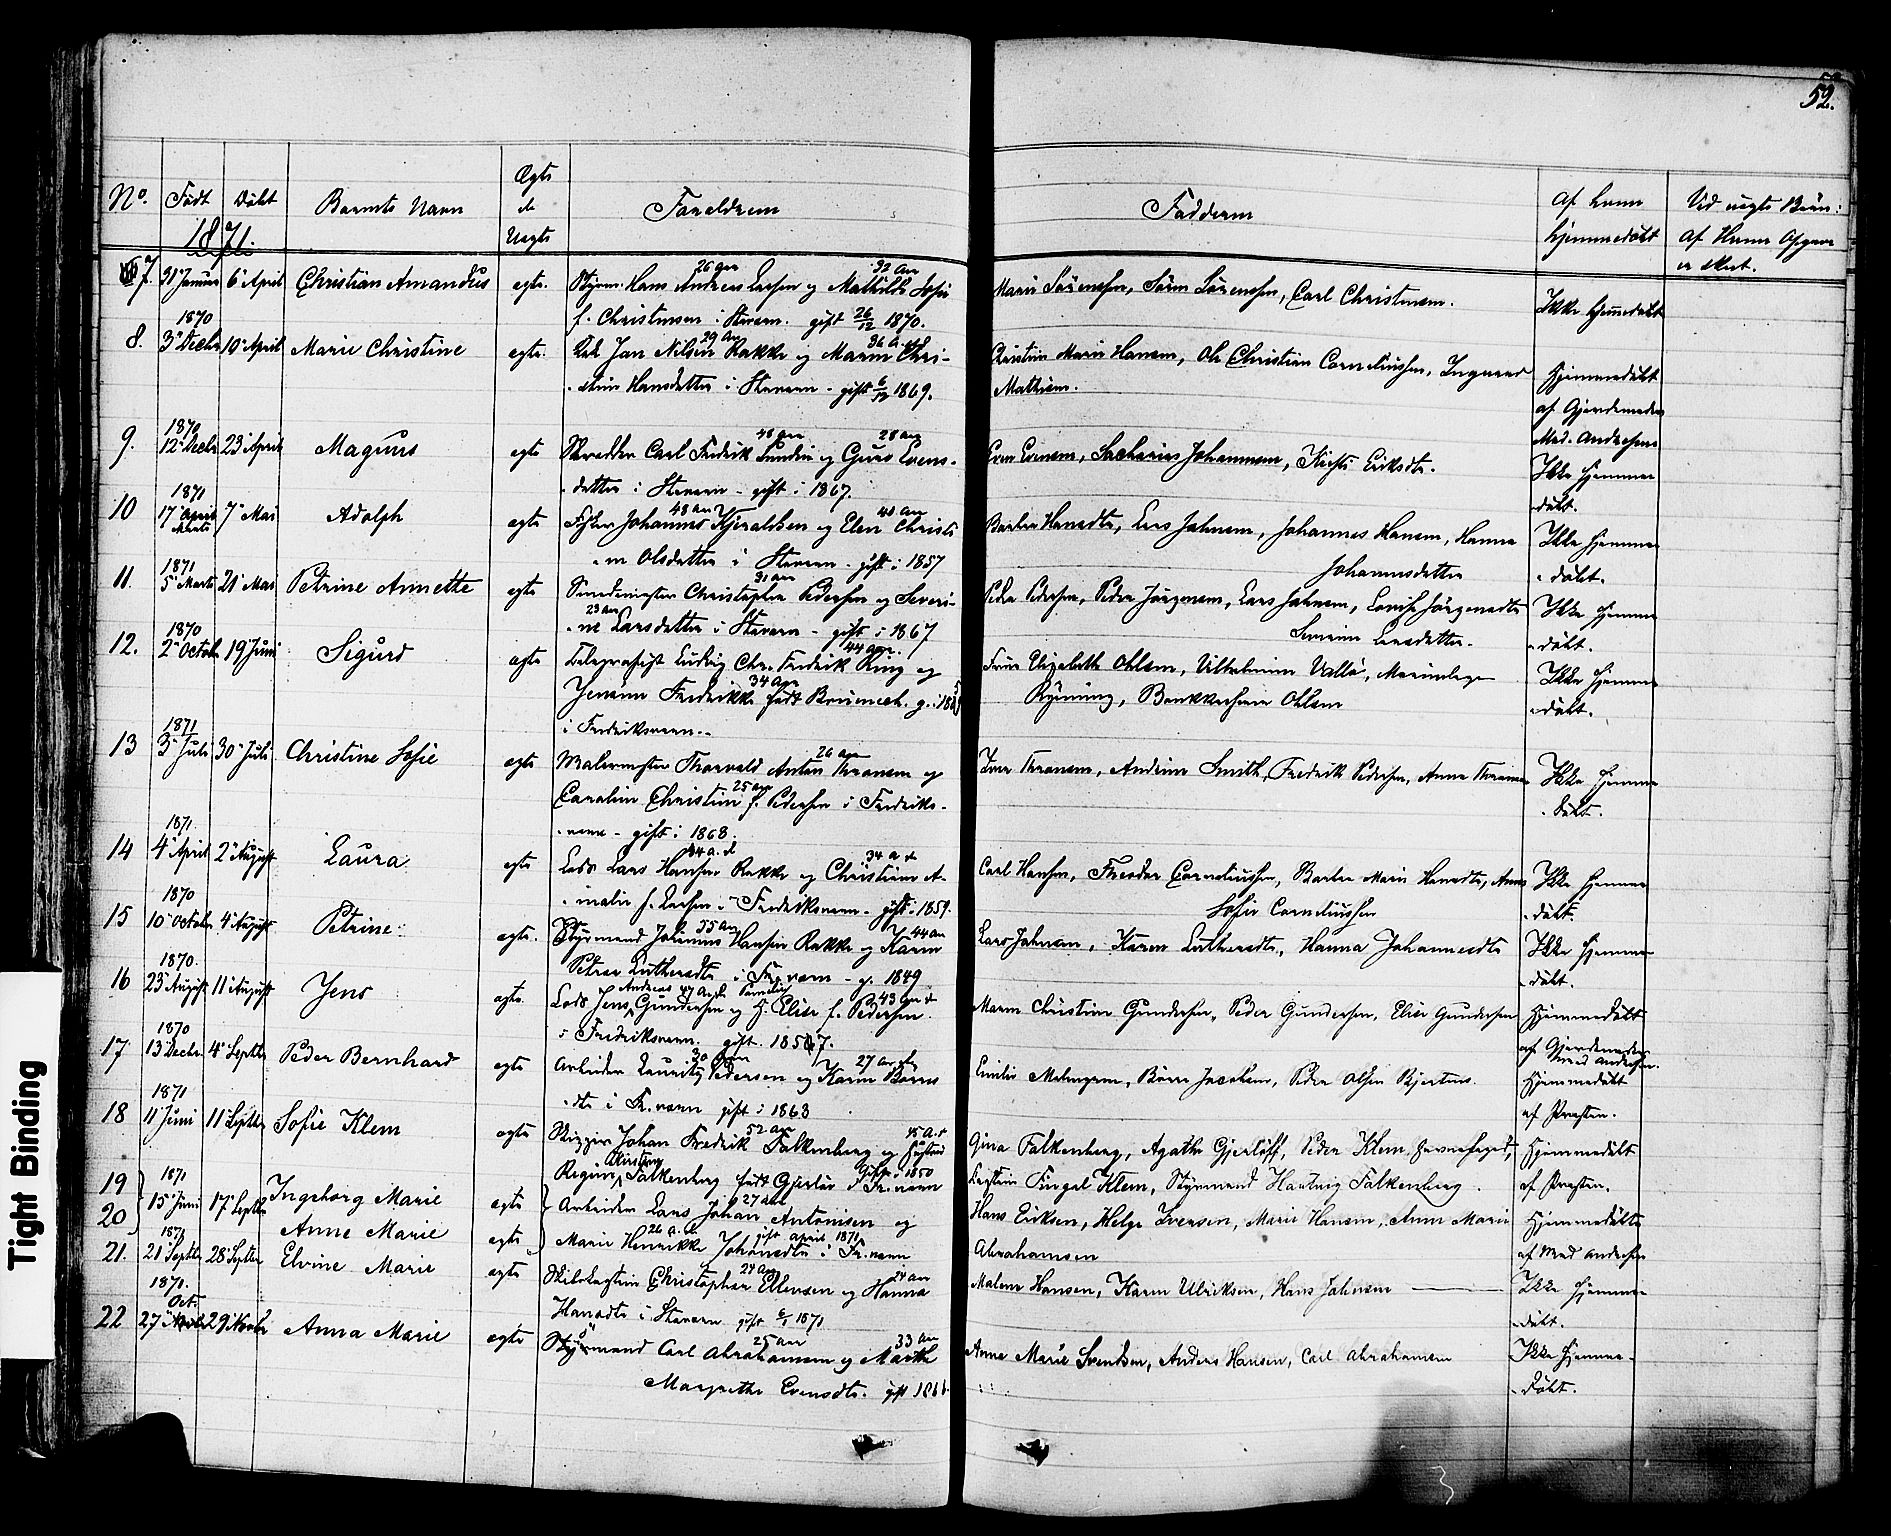 52.
No. Født Døbt Barnets Navn Ægte el. Uægte Forældrene Fadderne Af hvem hjemmedøbt Ved uægte Børn: Af Hvem Opgave er skeet.
1871.
26 aar 32 aar
7 31' Januar 6' April Christian Amandus ægte. Styrm. Hans Andreas Larsen og Mathilde Sofie Maria Sørensen, Søren Sørensen, Carl Christensen. Ikke hjemmedøbt
f. Christensen i Stavern. gift 26/12 1870.
1870 29 Aar 36 A.
8. 3' Decbr 10' April Marie Christine ægte. Jan Nilsen Rakke og Maren Chri- Christine Marie Hansen, Ole Christian Corneliussen, Ingvard Hjemmedøbt
stine Hansdatter i Stavern - gift 6/12 1869. Mathisen. af Gjordemoder
1870 48 aar 28 aar
9. 12' Decbr 23' April Magnus ægte Skrædder Carl Fredrik Lundin og Guro Evens- Even Evensen, Sacharias Johannesen, Kirsti Eriksdtr. Mad. Andresen Ikke hjemme-
datter i Stavern - gift i 1867. døbt.
1871 48 aar 40 aar
10 17' Marts 7' Mai Adolph ægte Fisker Johannes Kjeraldsen og Elen Christi- Barbra Hansdtr, Lars Johnsen, Johannes Hansen, Hanna Ikke hjemme-
ne Olsdatter i Stavern - gift i 1857 Johannesdatter døbt.
1871 31 aar
11. 5' Marts 21' Mai Petrine Annette ægte Smedemester Christopher Pedersen og Severi- Peder Pedersen, Peder Jørgensen, Lars Johnsen, Lovise Jørgensdtr Ikke hjemme-
23 aar
ne Larsdatter i Stavern - gift i 1867 Severine Larsdatter. døbt.
1870 44 aar.
12. 2' Octob. 19' Juni Sigurd ægte Telegrafist Ludvig Chr. Fredrik Ring og Frue Elizabeth Ohlsen, Vilhelmine Marinelæge Ikke hjemme-
34 aar
Jensine Fredrikke født Brünnech. g. i Rynning, Ohlsen døbt.
i Fredriksværn.
1871 26 aar
13 3' Juli 30' Juli Christine Sofie ægte Malermester Thorvald Anton Thranem og Iver Thranem, Andrine Smith, Fredrik Pedersen, Anna Thranem Ikke hjemme-
25 aar
Caroline Christine f. Pedersen i Fredriks- døbt.
værn - gift i 1868.
1871. 34 a. 34 a
14 4' April 2' August Laura ægte Lods Lars Hansen Rakke og Christiane A- Carl Hansen, Theodor Corneliussen, Barbra Marie Hansdtr, Anne Ikke hjemme-
malie f. Larsen i Fredriksværn - gift 1859. Sofie Corneliussen døbt.
1870 55 aar 44 aar
15 10' October 4' August Petrine ægte. Styrmand Johannes Hansen Rakke og Karen Lars Johnsen, Karen Luthersdtr, Hanna Johannesdtr Ikke hjemme-
Petrea Luthersdtr i Fr.værn - g. 1849 døbt.
1870. Andreas 43 aar
16 23' August 11' August Jens ægte. Lods Jens Gundersen og Elise f. Pedersen Maren Christine Gundersen, Peder Gundersen, Elise Gundersen Hjemmedøbt
i Fredriksværn. gift 1857. af Gjordemoder Mad Andresen.
1870 30 aar 27 aar
17 13' Decbr. 4' Septbr Peder Bernhard ægte Arbeider Lauritz Pedersen og Karen Børres Emilie Malmgren, Børre Jacobsen, Peder Olsen Bjertnes. Hjemmedøbt
dtr i Fr.værn gift i 1863 af Præsten.
1871 52 aar 45 a.
18 11' Juni 11' Septbr Sofie Klem ægte Skipper Johan Fredrik Falkenberg og Hustru Gina Falkenberg, Agathe Gjerløff, Peder Klem Hjemmedøbt
Regine Christine Falkenberg født Gjerløv i Fr.værn Gift 1850 Fingal Klem, Styrmand Hartvig Falkenberg. af Præsten.
1871 27 aar
19 15' Juni 17' Septbr Ingeborg Marie ægte Arbeider Lars Johan Antonisen og Hans Eriksen, Helge Iversen, Marie Hansen, Anne Marie Hjemmedøbte
26 a. gift april 1871
20 Anne Marie ægte Marie Henrikke Johansdtr i Fr.værn Abrahamsen af Mad Andresen
1871 24 aar 24 aar
21. 21' Septbr 28' Septbr Elvine Marie ægte Christopher Ellensen og Hanna Malene Hansen, Karen Ulriksen, Hans Johnsen Ikke hjemme-
Hansdtr i Stavern gift 6/1 1871 døbt.
1871. Oct. 25 aar 33 aar
22 27' 29' Novbr Anna Marie ægte Styrmand Carl Abrahamsen og Marthe Anne Marie Svendsen, Anders Hansen, Carl Abrahamsen Ikke hjemme-
Margrethe Evensdtr. gift 1866 døbt.
Tight Binding